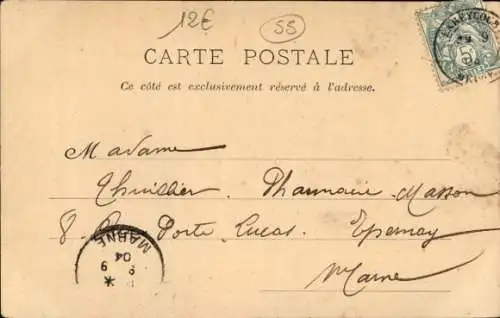 12€
55
CARTE POSTALE
Ce côté est exclusivement réservé à l'adresse.
Madame
Thuillier Pharmacie Masson
8 Rue Porte Lucas. Epernay
Marne
MARNE
9
04
5